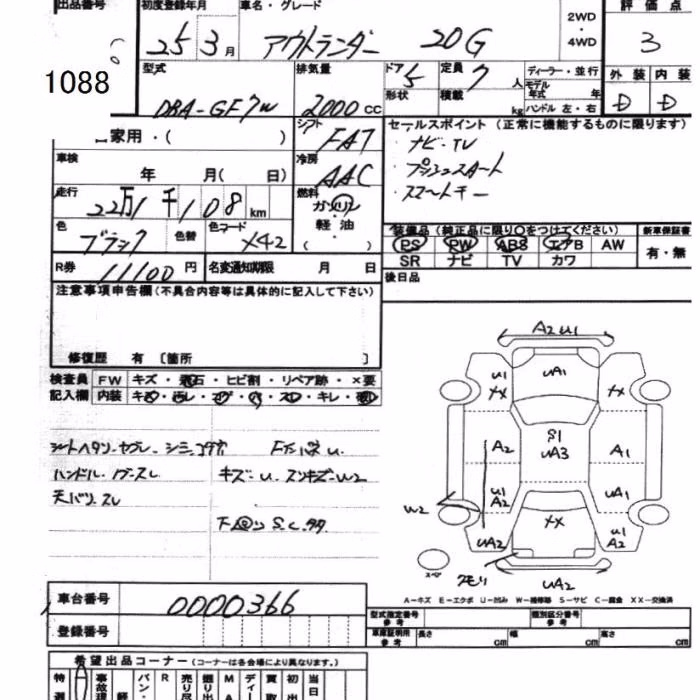 出品番号 初度登録年月 車名・グレード 2WD・4WD 評価点
1088 25 3月 アウトランダー 20G 3
型式 排気量 ドア 5 定員 7人 ディーラー・並行 外装 内装
DBA-GF7W 2000cc 形状 積載 kg モデル年式 年 ハンドル 左・右 D D
自家用・( ) シフト FAT セールスポイント (正常に機能するものに限ります)
車検 年 月( 日) 冷房 AAC ナビ・TV
走行 22万1千108km 燃料 ガソリン 軽油 ( ) プッシュスタート
スマートキー
色 ブラック 色替 色コード X42 装備品 (純正品に限り○をつけてください) 新車保証書
PS PW ABS エアB AW 有・無
R券 11100円 名変通知期限 月 日 SR ナビ TV カワ
注意事項申告欄(不具合内容等は具体的に記入して下さい) 後日品
修復歴 有 [箇所 ]
検査員 FW キズ・飛石・ヒビ割・リペア跡・×要
記入欄 内装 キズ・汚レ・コゲ・穴・スレ・キレ・
シートヘタリ
ハンドル スレ キズ・U スリキズ・W2
天バリ スレ
下回り S.C
A2 U1
UA1
U1 XX XX
A2 S1 UA3 A1
U1 A2 UA1
W2
XX U1 A2
UA2
スペア UA2
A-キズ E-エクボ U-凹み W-補修跡 S-サビ C-腐食 XX-交換済
車台番号 0000366
登録番号
型式指定番号 参考 類別区分番号 参考
車庫証明用 参考 長さ cm 幅 cm 高さ cm
希望出品コーナー (コーナーは各会場により異なります。)